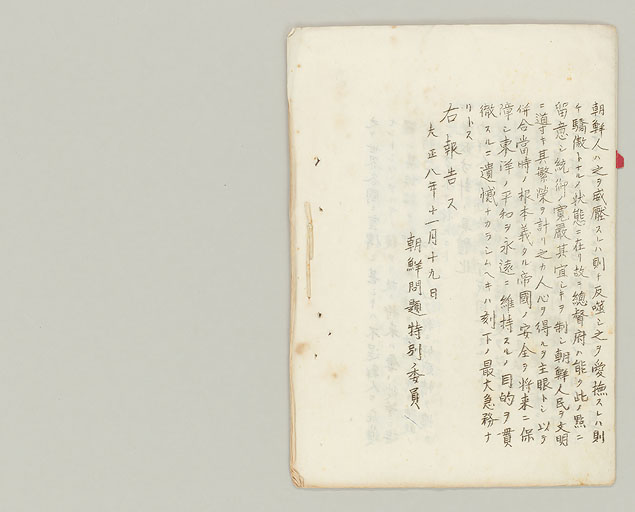 朝鮮人ハ之ヲ威壓スレハ則チ反噬シ之ヲ愛撫スレハ則
チ驕傲トナルノ状態ニ在リ故ニ總督府ハ能ク此ノ點ニ
留意シ統御ノ寛嚴其宜シキヲ制シ朝鮮人民ヲ文明
ニ導キ其繁榮ヲ計リ之カ人心ヲ得ルヲ主眼トシ以テ
併合當時ノ根本義タル帝國ノ安全ヲ將來ニ保
障シ東洋ノ平和ヲ永遠ニ維持スルノ目的ヲ貫
徹スルニ遺憾ナカラシムヘキハ刻下ノ最大急務ナ
リトス
右報告ス
大正八年十一月十九日
朝鮮問題特別委員